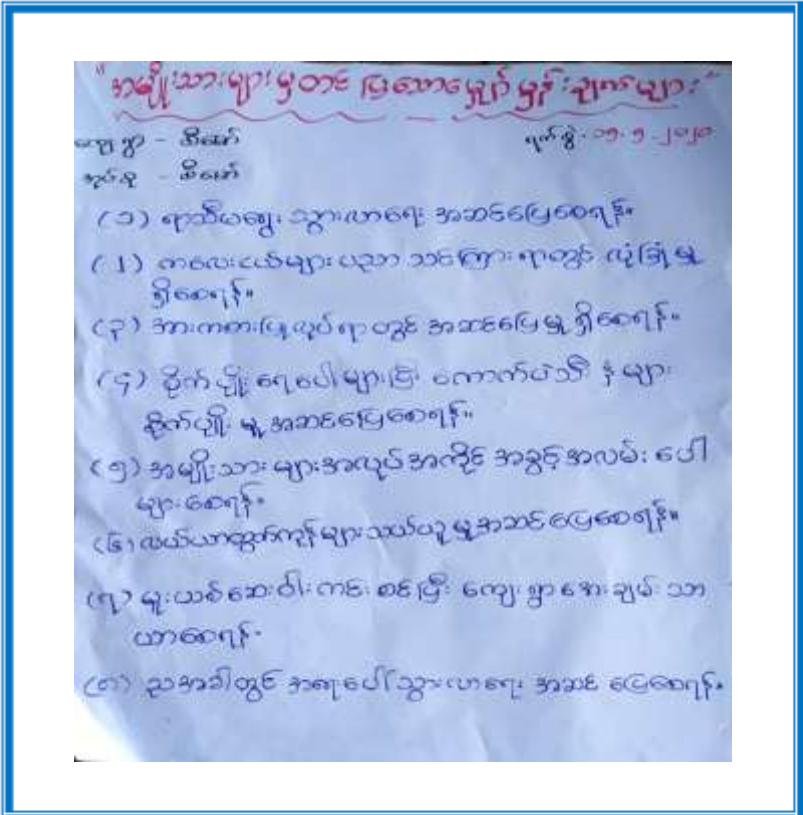 "အမျိုးသားများမှတင်ပြသောမျှော်မှန်းချက်များ"
ကျေးရွာ - ဆီဒော်
ရက်စွဲ - ၁၅-၅-၂၀၂၀
အုပ်စု - ဆီဒော်
(၁) ရာသီမရွေး သွားလာရေး အဆင်ပြေစေရန်။
(၂) ကလေးငယ်များ ပညာ သင်ကြားရာတွင် လုံခြုံမှု
ရှိစေရန်။
(၃) အားကစားပြုလုပ်ရာတွင် အဆင်ပြေမှုရှိစေရန်။
(၄) စိုက်ပျိုးရေပေါများပြီး ကောက်ပဲသီးနှံများ
စိုက်ပျိုးမှု အဆင်ပြေစေရန်။
(၅) အမျိုးသားများအလုပ်အကိုင် အခွင့်အလမ်း ပေါ
များစေရန်။
(၆) လယ်ယာထွက်ကုန်များ သယ်ယူမှုအဆင်ပြေစေရန်။
(၇) မူးယစ်ဆေးဝါးကင်းစင်ပြီး ကျေးရွာအေးချမ်းသာ
ယာစေရန်။
(၈) ညအခါတွင် အရေးပေါ်သွားလာရေး အဆင်ပြေစေရန်။